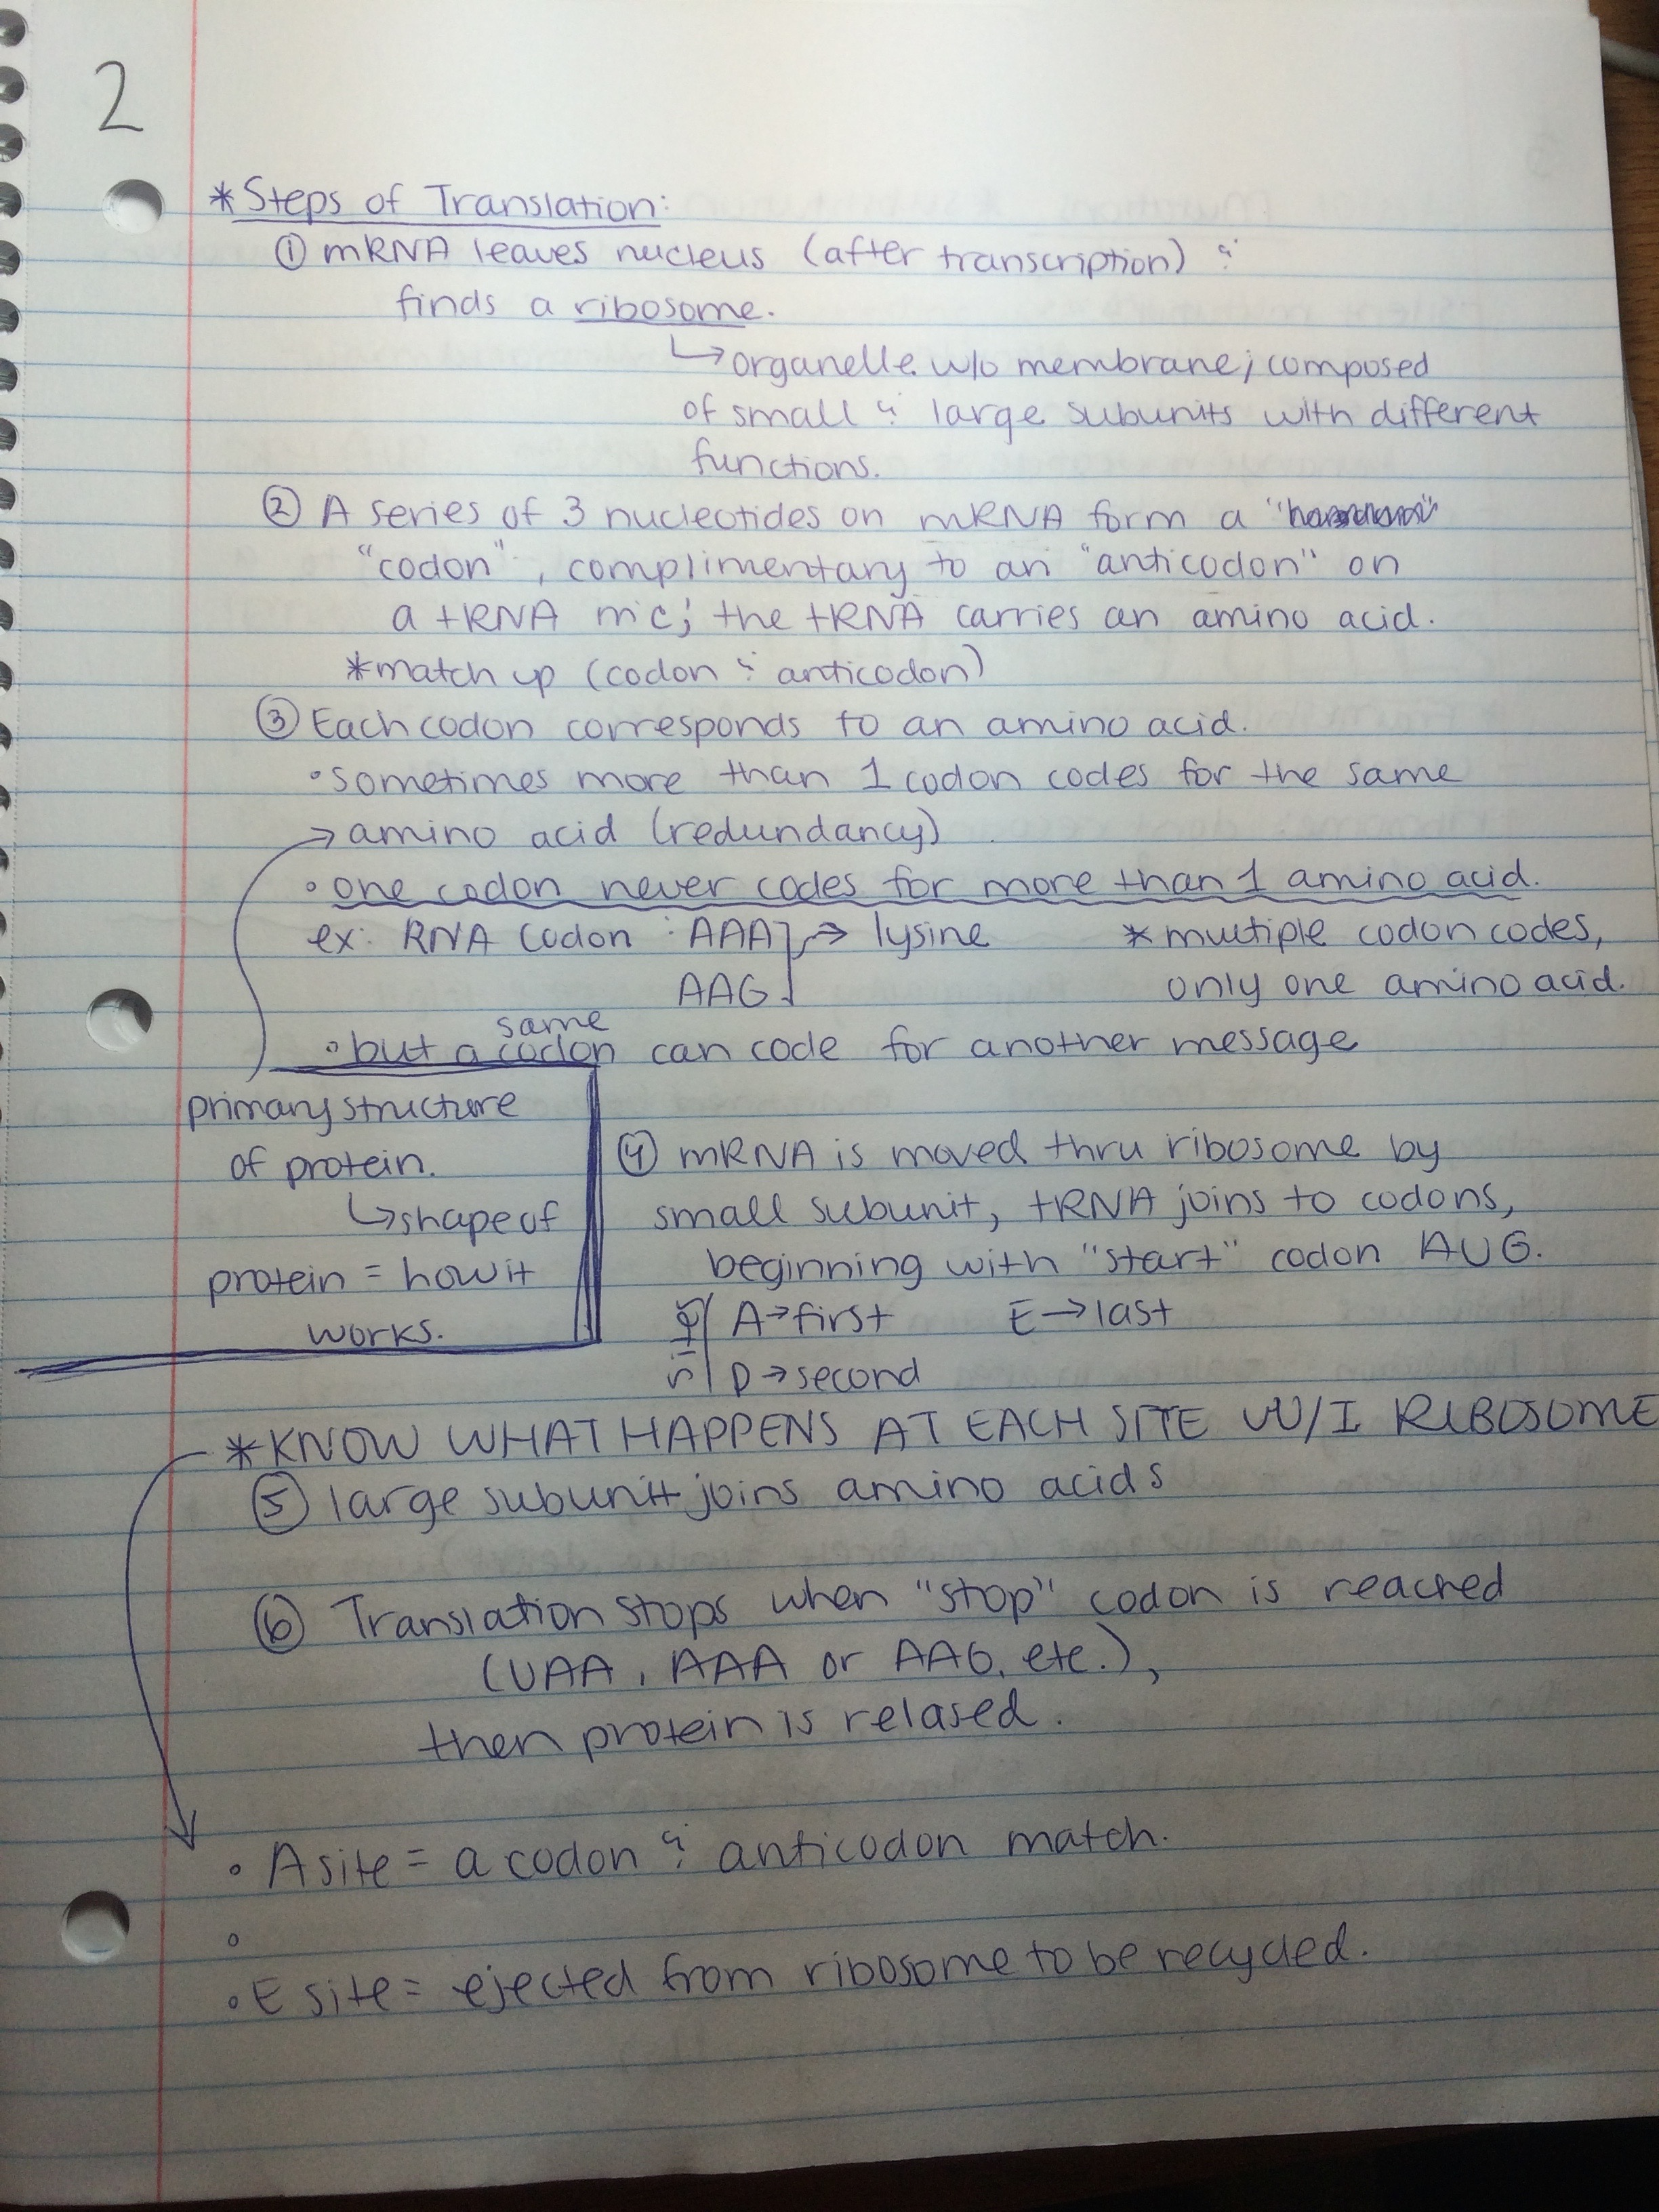 2
*Steps of Translation:
① mRNA leaves nucleus (after transcription) &
finds a ribosome.
↳ organelle w/o membrane; composed
of small & large subunits with different
functions.
② A series of 3 nucleotides on mRNA form a "
"codon", complimentary to an "anticodon" on
a tRNA mc; the tRNA carries an amino acid.
*match up (codon & anticodon)
③ Each codon corresponds to an amino acid.
• sometimes more than 1 codon codes for the same
→ amino acid (redundancy)
• one codon never codes for more than 1 amino acid.
ex: RNA codon : AAA] → lysine
AAG
* multiple codon codes,
only one amino acid.
• but a same codon can code for another message
primary structure
of protein.
↳ shape of
protein = how it
works.
④ mRNA is moved thru ribosome by
small subunit, tRNA joins to codons,
beginning with "start" codon AUG.
A → first E → last
P → second
*KNOW WHAT HAPPENS AT EACH SITE W/I RIBOSOME
⑤ large subunit joins amino acids
⑥ Translation stops when "stop" codon is reached
(UAA, AAA or AAG, etc.),
then protein is relased.
• A site = a codon & anticodon match.
•
• E site = ejected from ribosome to be recycled.